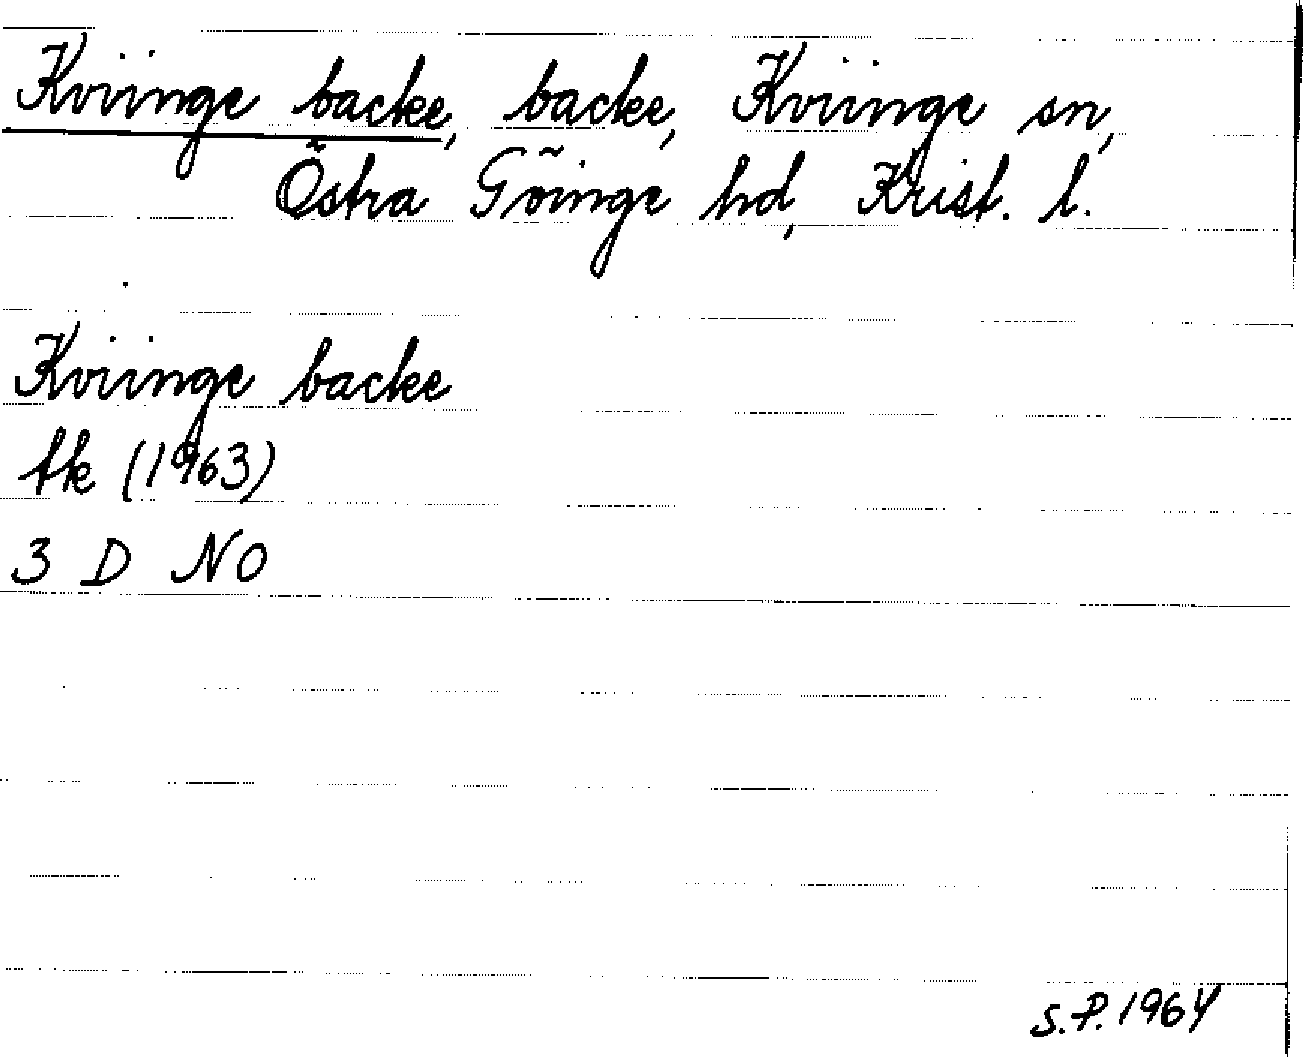 Kviinge backe, backe, Kviinge sn,
Östra Göinge hd, Krist. l.
Kviinge backe
tk (1963)
3 D NO
S.P. 1964